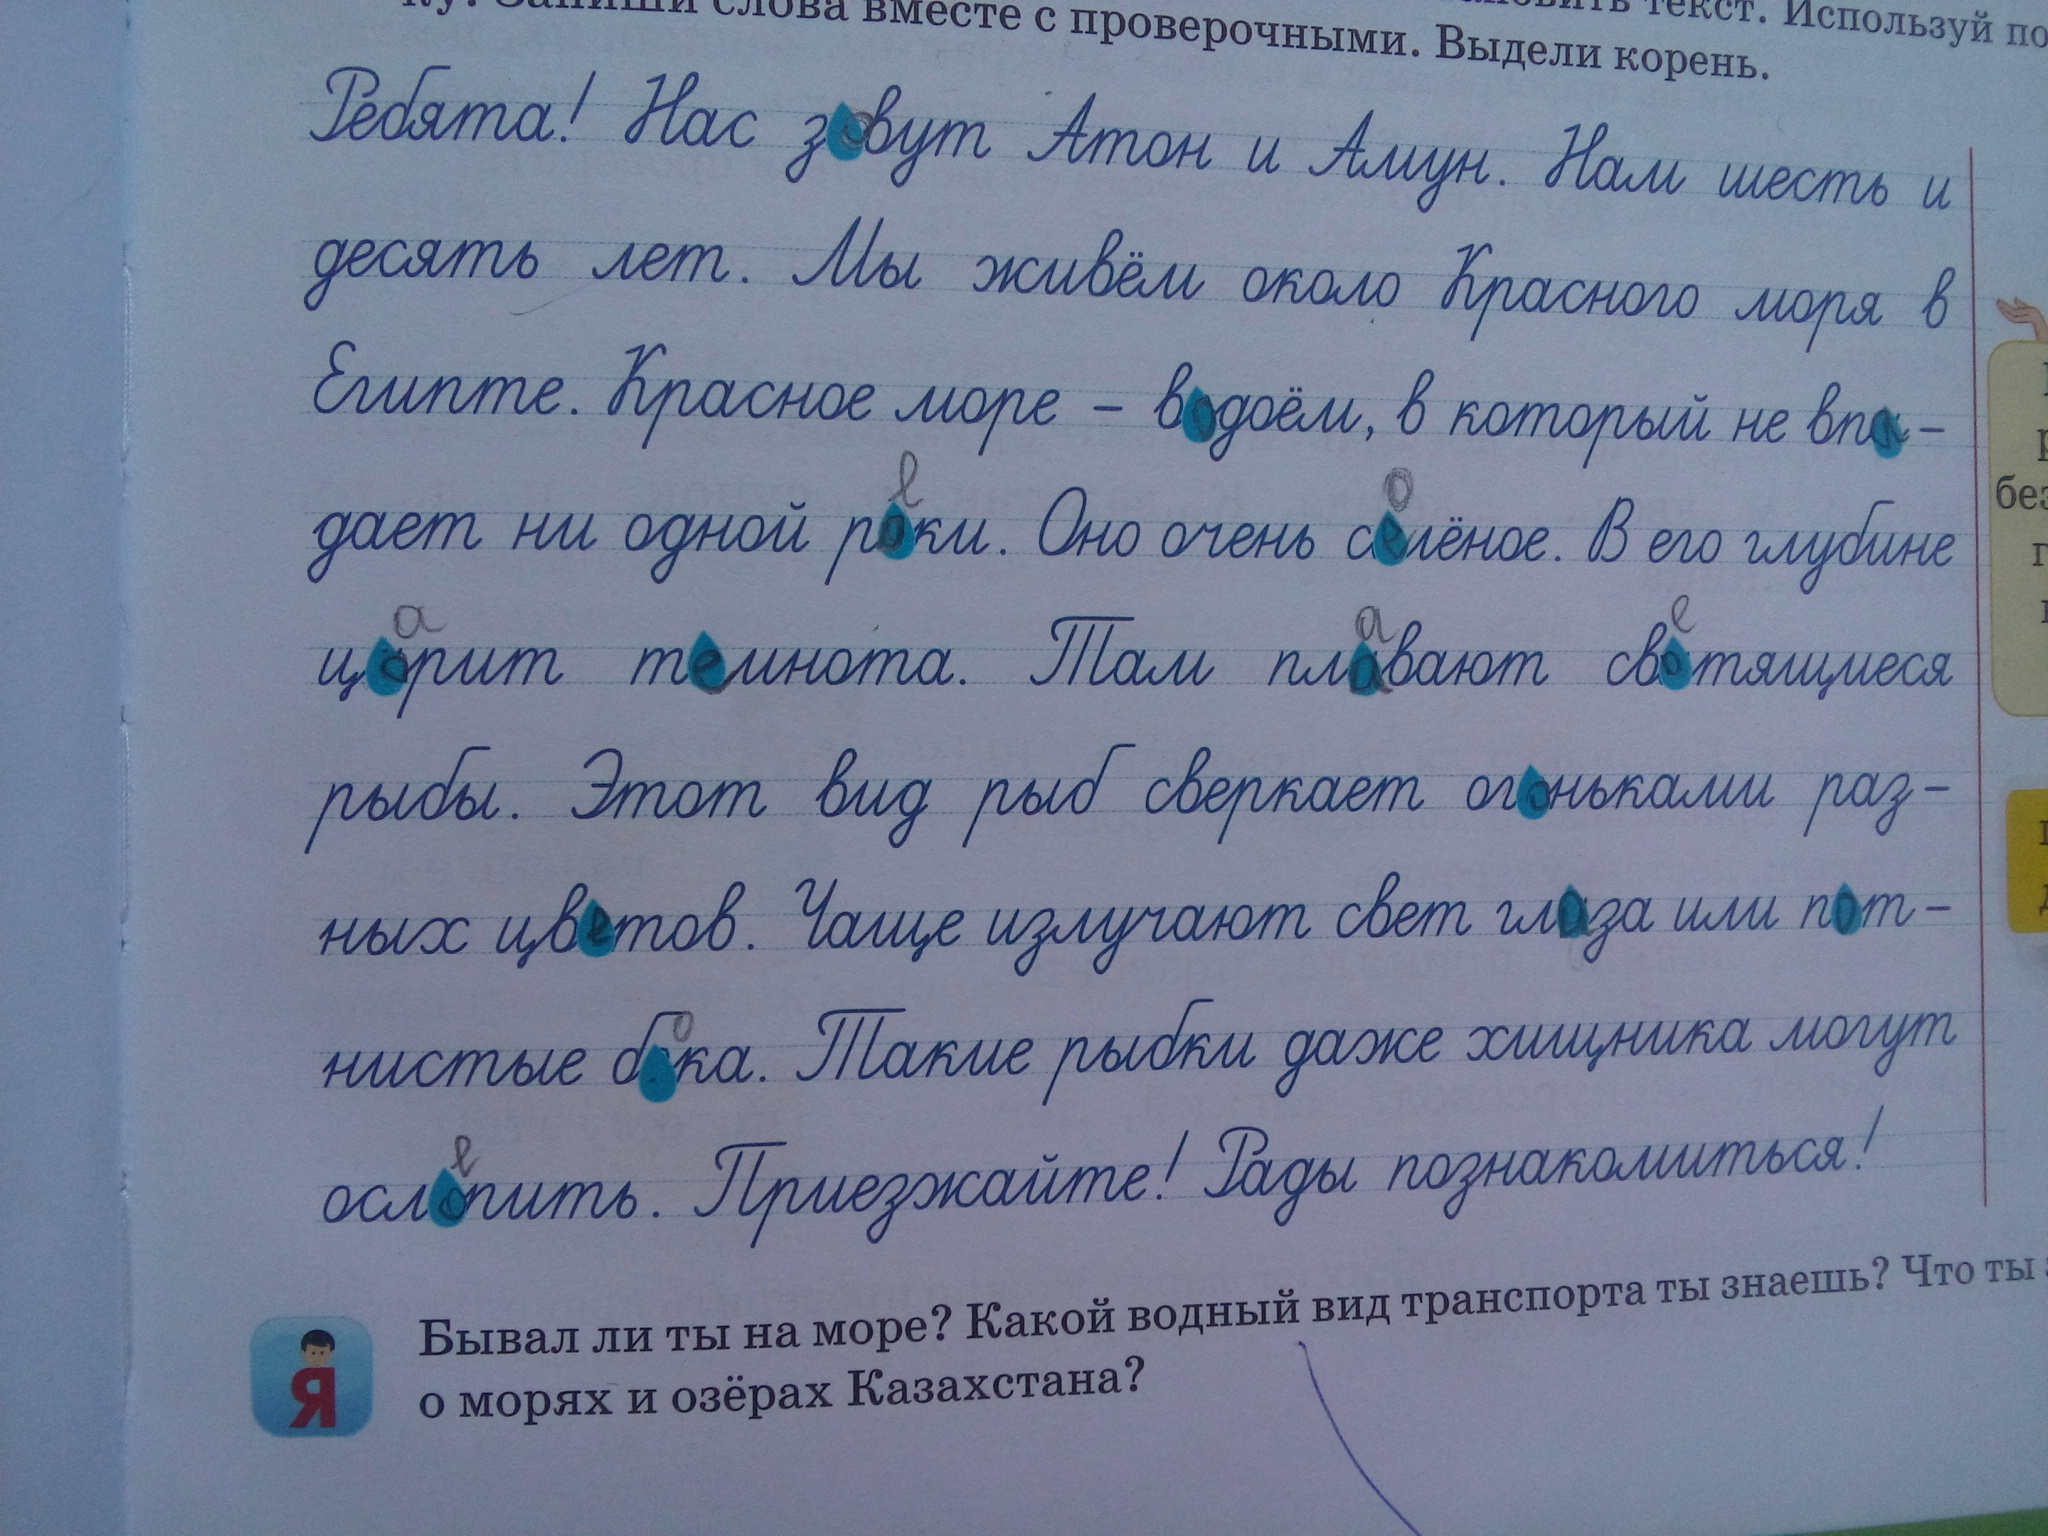 ку. Запиши слова вместе с проверочными. Выдели корень.
текст. Используй
Ребята! Нас зовут Атон и Амун. Нам шесть и
десять лет. Мы живём около Красного моря в
Египте. Красное море – водоём, в который не впа-
дает ни одной реки. Оно очень солёное. В его глубине
царит темнота. Там плавают светящиеся
рыбы. Этот вид рыб сверкает огоньками раз-
ных цветов. Чаще излучают свет глаза или пот-
нистые бока. Такие рыбки даже хищника могут
ослепить. Приезжайте! Рады познакомиться!
Я
Бывал ли ты на море? Какой водный вид транспорта ты знаешь? Что ты
о морях и озёрах Казахстана?
без